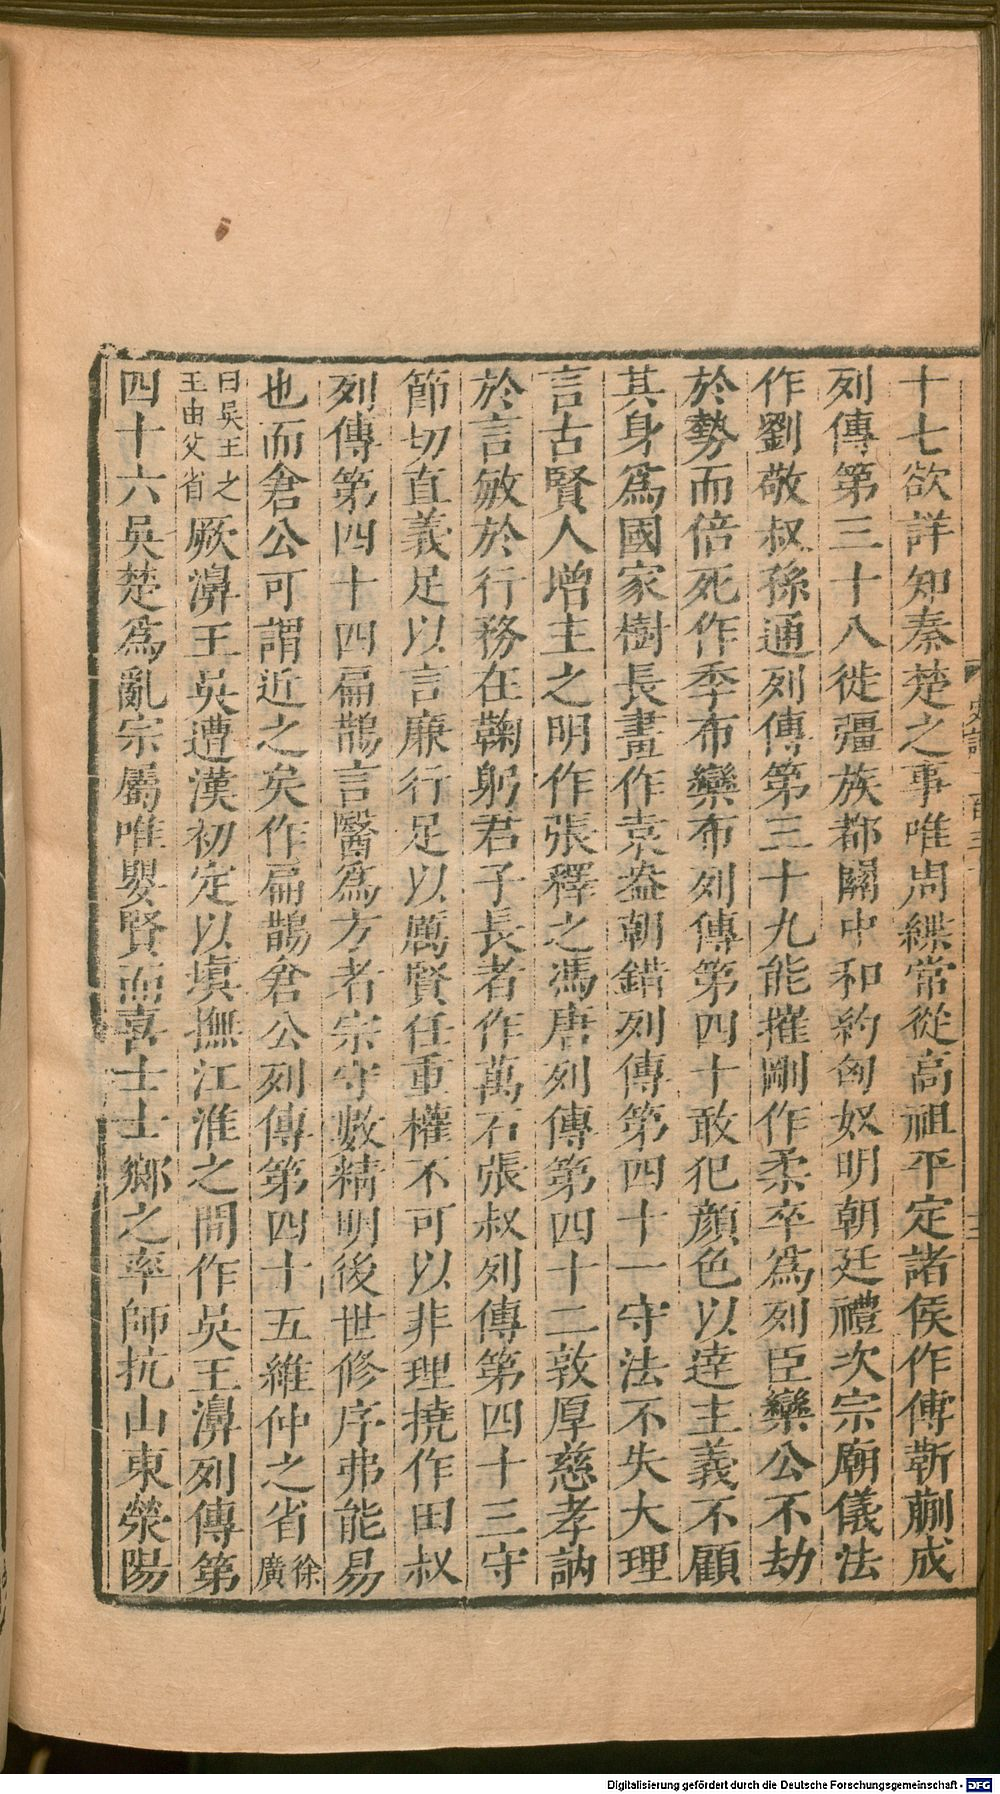 十七欲詳知秦楚之事唯周緤常從高祖平定諸侯作傅靳蒯成
列傳第三十八徙彊族都關中和約匈奴明朝廷禮次宗廟儀法
作劉敬叔孫通列傳第三十九能摧剛作柔卒爲列臣欒公不劫
於勢而倍死作季布欒布列傳第四十敢犯顏色以達主義不顧
其身爲國家樹長畫作袁盎朝錯列傳第四十一守法不失大理
言古賢人增主之明作張釋之馮唐列傳第四十二敦厚慈孝訥
於言敏於行務在鞠躬君子長者作萬石張叔列傳第四十三守
節切直義足以言廉行足以厲賢任重權不可以非理撓作田叔
列傳第四十四扁鵲言醫爲方者宗守數精明後世修序弗能易
也而倉公可謂近之矣作扁鵲倉公列傳第四十五維仲之省徐廣
曰吳王之王由父省厥濞王吳遭漢初定以塡撫江淮之間作吳王濞列傳第
四十六吳楚爲亂宗屬唯嬰賢而喜士士鄉之率師抗山東滎陽
Digitalisierung gefördert durch die Deutsche Forschungsgemeinschaft - DFG